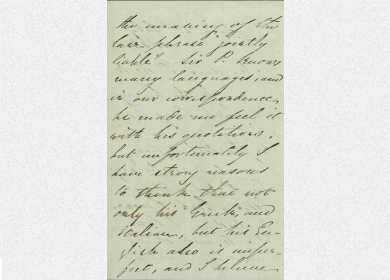 the meaning of the
law phrase "jointly
liable". Sir P. knows
many languages, and
in our correspondence,
he made me feel it
with his quotations;
but unfortunately I
have strong reasons
to think that not
only his Greek, and
Italian, but his En-
glish also is imper-
fect, and I believe